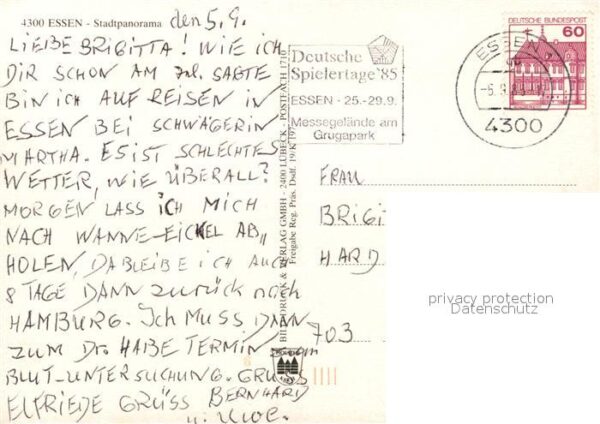 4300 ESSEN - Stadtpanorama
den 5.9.
LIEBE BRIGITTA! WIE ICH
DIR SCHON AM SAGTE
BIN ICH AUF REISEN IN
ESSEN BEI SCHWÄGERIN
MARTHA. ES IST SCHLECHTES
WETTER, WIE ÜBERALL?
MORGEN LASS ICH MICH
NACH WANNE-EICKEL AB„
HOLEN, DA BLEIBE ICH AUCH
8 TAGE DANN ZURÜCK NACH
HAMBURG. ICH MUSS DANN
ZUM DR. HABE TERMIN zum
BLUT-UNTERSUCHUNG. GRUSS
ELFRIEDE GRÜSS BERNHARD
u. UWE.
BILDDRUCK & VERLAG GMBH - 2400 LÜBECK - POSTFACH 1710
Freigabe Reg. Präs. Dsdf. 19/K
Deutsche
Spielertage '85
ESSEN - 25.-29.9.
Messegelände am
Grugapark
ESSEN
4300
DEUTSCHE BUNDESPOST
60
FRAU
BRIGI
HARD
703
privacy protection
Datenschutz